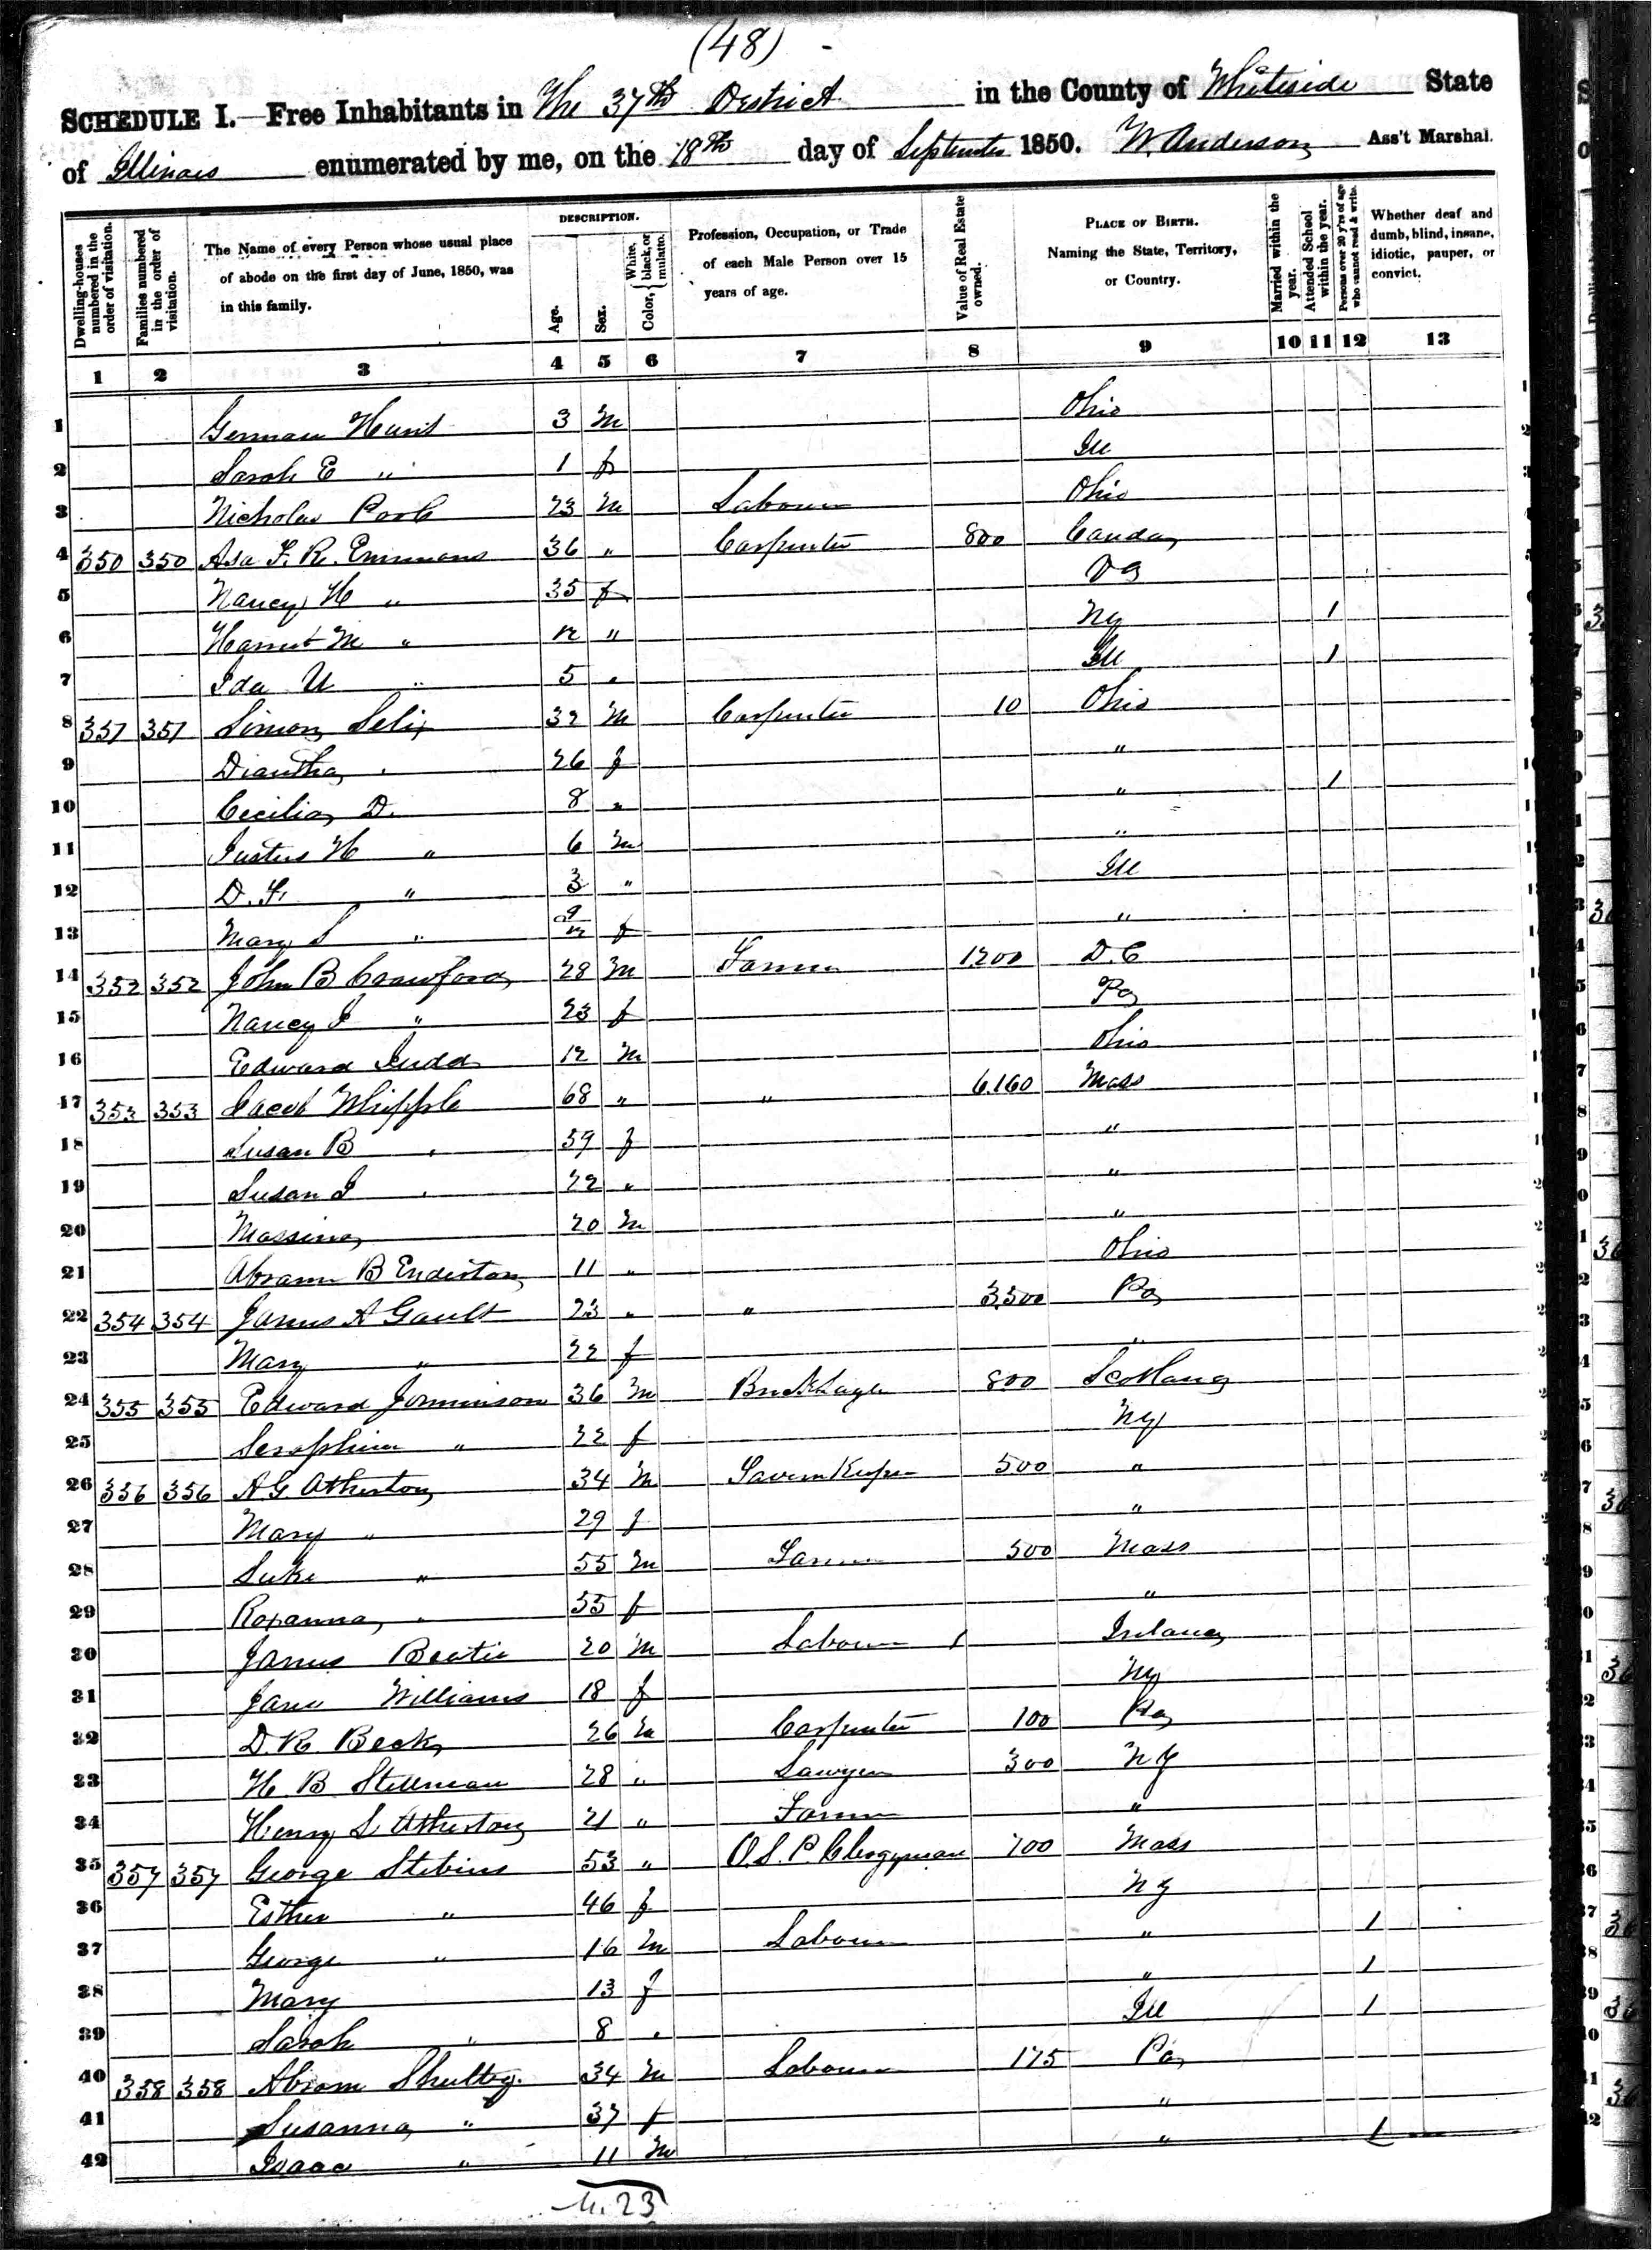 (48)
SCHEDULE I.—Free Inhabitants in The 37th District in the County of Whiteside State
of Illinois enumerated by me, on the 18th day of September 1850. W. Anderson Ass't Marshal.
Dwelling-houses numbered in the order of visitation.
Families numbered in the order of visitation.
The Name of every Person whose usual place of abode on the first day of June, 1850, was in this family.
DESCRIPTION.
Age.
Sex.
Color, { White, black, or mulatto.
Profession, Occupation, or Trade of each Male Person over 15 years of age.
Value of Real Estate owned.
PLACE OF BIRTH. Naming the State, Territory, or Country.
Married within the year.
Attended School within the year.
Persons over 20 y'rs of age who cannot read & write.
Whether deaf and dumb, blind, insane, idiotic, pauper, or convict.
1 2 3 4 5 6 7 8 9 10 11 12 13
1 German 3 M Ohio
2 Sarah E " 1 f Ill
3 Nicholas 23 M Labourer Ohio
4 350 350 Asa F. R. Emmons 36 " Carpenter 800 Canda
5 Nancy H " 35 f
6 M " 12 " NY 1
7 Ida U " 5 " Ill 1
8 351 351 Simon 32 M Carpenter 10 Ohio
9 Diantha " 26 f "
10 Cecilia D. 8 " " 1
11 Justus H " 6 M "
12 D. F. " 3 " Ill
13 Mary S " 9/12 f "
14 352 352 John B Crawford 28 M Farmer 1200 D.C
15 Nancy J " 23 f Pa
16 Edward Judd 12 M Ohio
17 353 353 Jacob Whipple 68 " " 6.160 Mass
18 Susan B " 59 f "
19 Susan J " 22 " "
20 Massina 20 M "
21 Abram B 11 " Ohio
22 354 354 James A Gault 23 " " 3500 Pa
23 Mary " 22 f "
24 355 355 Edward 36 M Brick Layer 800 Scotland
25 Seraphina " 22 f NY
26 356 356 A G Atherton 34 M Tavern Keeper 500 "
27 Mary " 29 f "
28 Luke " 55 M Farmer 500 Mass
29 Roxanna " 55 f "
30 James Beatie 20 M Labourer 1 Ireland
31 Jane Williams 18 f NY
32 D. R. Beck 26 M Carpenter 100 Pa
33 H. B Stillman 28 " Lawyer 300 NY
34 Henry L Atherton 21 " Farmer "
35 357 357 George Stebins 53 " O.S.P. Clergyman 700 Mass
36 Esther " 46 f NY
37 George " 16 M Labourer " 1
38 Mary 13 f " 1
39 Sarah " 8 " Ill 1
40 358 358 Abram 34 M Labourer 175 Pa
41 Susanna " 37 f "
42 Isaac " 11 M " 1
23